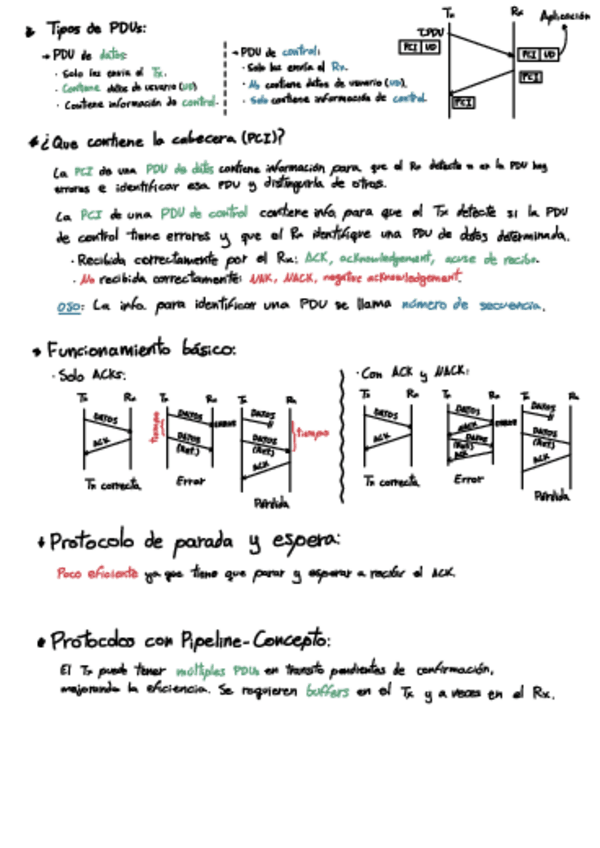 Tipos de PDUs:
→ PDU de datos:
· Solo las envía el Tx.
· Contiene datos de usuario (UD)
· Contiene información de control.
→ PDU de control:
· Solo las envía el Rx.
· No contiene datos de usuario (UD).
· Solo contiene información de control.
Tx Rx Aplicación
PCI UD
PCI UD
PCI
PCI
¿Que contiene la cabecera (PCI)?
La PCI de una PDU de datos contiene información para que el Rx detecte si en la PDU hay
errores e identificar esa PDU y distinguirla de otras.
La PCI de una PDU de control contiene info. para que el Tx detecte si la PDU
de control tiene errores y que el Rx identifique una PDU de datos determinada.
· Recibida correctamente por el Rx: ACK, acknowledgement, acuse de recibo.
· No recibida correctamente: NAK, NACK, negative acknowledgement.
OJO: La info. para identificar una PDU se llama número de secuencia.
Funcionamiento básico:
· Solo ACKs:
Tx Rx Tx Rx Tx Rx
DATOS
ACK
Tx correcta
tiempo
DATOS
ERROR
DATOS
(Ret.)
Error
DATOS
DATOS
(Ret.)
ACK
tiempo
Pérdida
· Con ACK y NACK:
Tx Rx Tx Rx Tx Rx
DATOS
ACK
Tx correcta
DATOS
ERROR
NACK
DATOS
(Ret.)
ACK
Error
DATOS
DATOS
(Ret.)
ACK
Pérdida
Protocolo de parada y espera:
Poco eficiente ya que tiene que parar y esperar a recibir el ACK.
Protocolos con Pipeline-Concepto:
El Tx puede tener múltiples PDUs en transito pendientes de confirmación,
mejorando la eficiencia. Se requieren buffers en el Tx y a veces en el Rx.